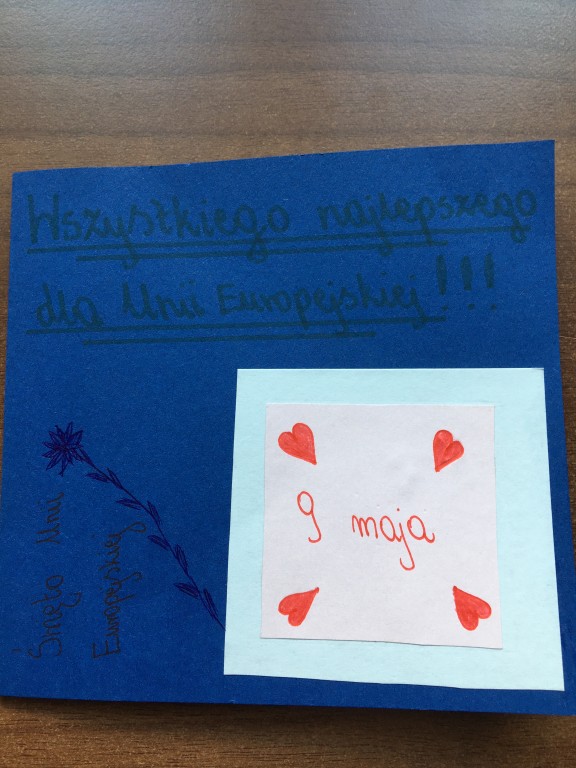 Wszystkiego najlepszego
dla Unii Europejskiej!!!
9 maja
Święto Unii
Europejskiej